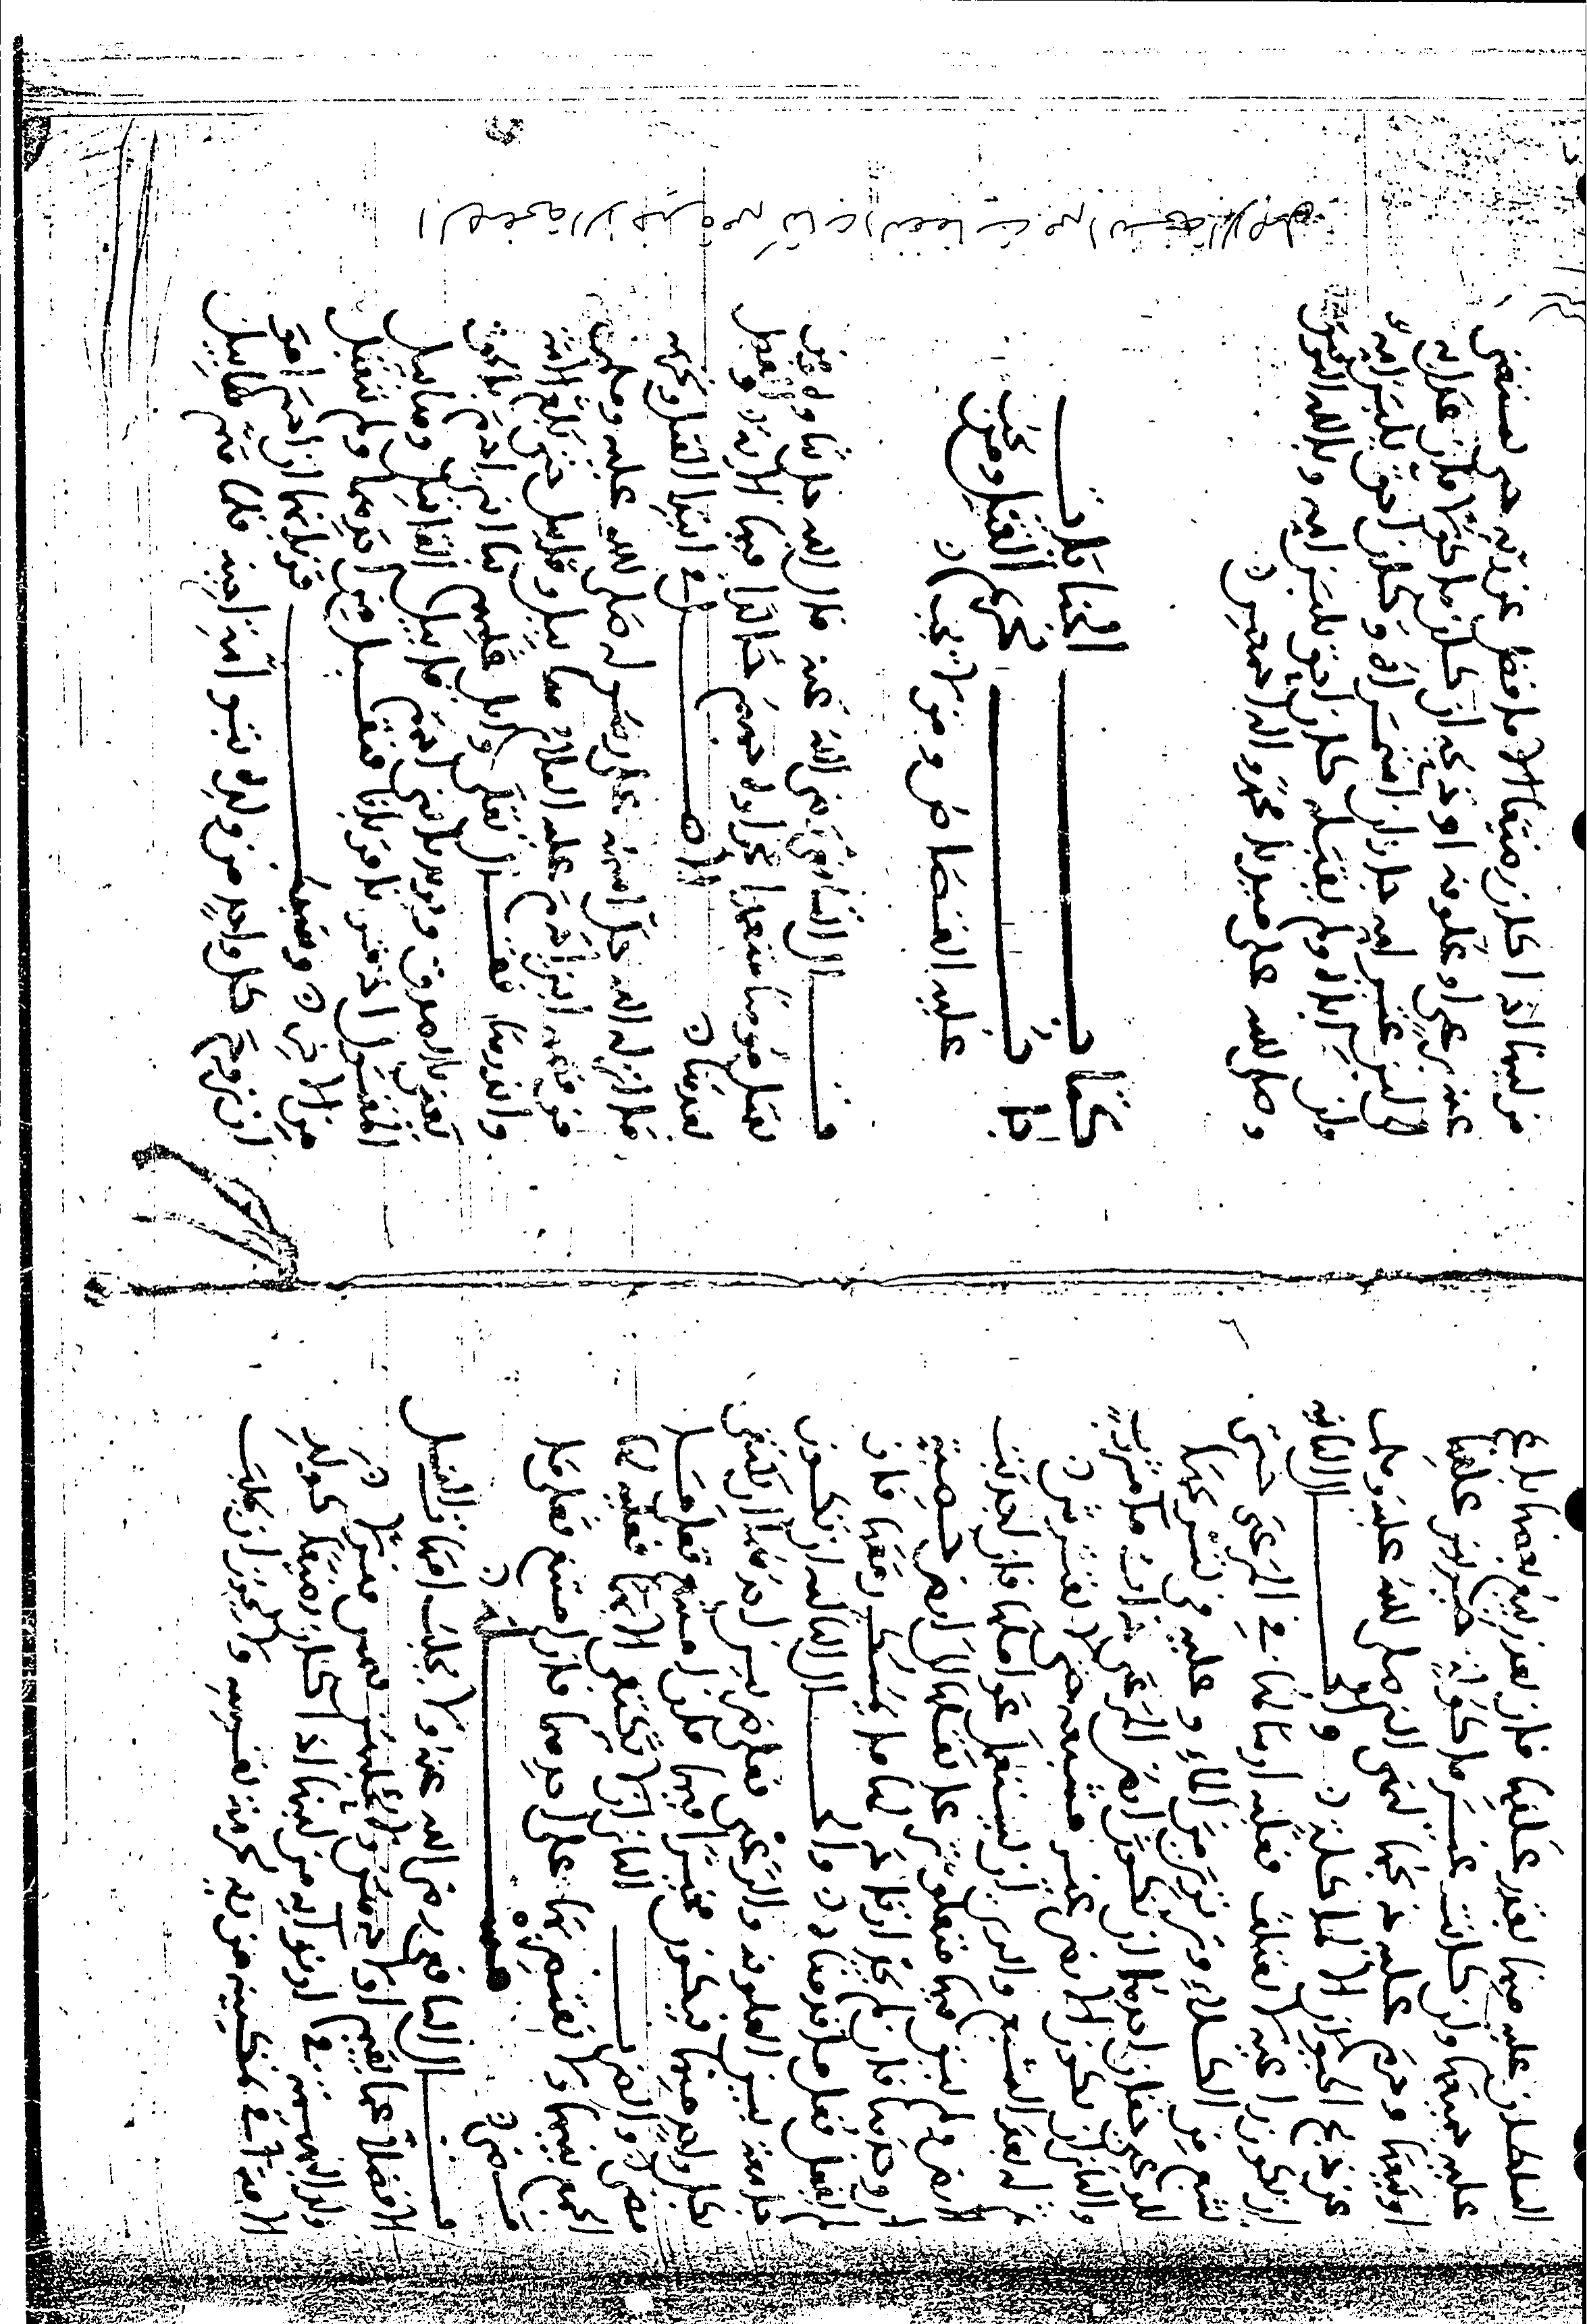 السلطان عليه منها بقدر علفها فان تعذر بيع بعضها باع
عليه جميعها وان كانت غير ماكولة خير بين علفها
او بيعها وحرم عليه ذبحها لنهي النبي صلى الله عليه وسلم
عن ذبح الحيوان الا لماكلة والحال الثانية
ان تكون راعية لا تعتلف فعليه ارسالها في المرعى حتى
تشبع من الكلاء وترتوي من الماء وعليه في تسريحها
للرعي حقان احدهما ان تكون ارض المرعى ذات ماء مشرب
والثاني ان تكون الارض غير مسبعة حتى لا تفترس
ثم له بعد الشبع والري ان يستعمل عواملها فان اجدبت
الارض ولم يبق فيها متعلق عاد نقلها الى ارض خصبة
ان وجدها فان لم يجد ارتاد لها ما يمسك رمقها فان
لم يفعل فعل ما قدمناه والحال الثالثة ان تكون
جامعة بين العلوفة والرعي فعلى ضربين احدهما ان تكتفي
بكل واحد منهما فيكون مخيرا فيها فان امتنع فعلى ما
مضى والضرب الثاني ان لا تكتفي الا بهما فعليه لها
الجمع بينهما ولا تقتصر بها على احدهما فان امتنع فعلى ما
مضى
قال الشافعي رضي الله عنه ولا تحلب امهات النسل
الا فضلا عما يقيم اولادهن ولا يحلبهن فيمتن هزلا
ولد البهيمة في ارتوائه من لبنها اذا كان رضيعا كولد
الامة في تمكينه من ريه لحرمة نفسه ولا يجوز ان يحلب
من لبنها اذا كان الا ما فضل عن ريه حتى يستغني
عنه برعي او علوفة او ذبح ان كان ماكولا فان عدل به
الى لبن غير امه جاز ان استمراه وكان احق بلبن امه
وان لم يقبله كان احق بلبن امه وبالله التوفيق
وصلى الله على سيدنا محمد واله اجمعين
كتاب الجنايات
باب تحريم القتل ومن يجب
عليه القصاص ومن لا يجب
قال الشافعي رضي الله عنه قال الله جل ثناؤه ومن
يقتل مؤمنا متعمدا فجزاؤه جهنم خالدا فيها الاية والفصل
بعدها الاصل في ابتداء القتل وتحريمه
ما انزله الله جل اسمه على رسوله صلى الله عليه وسلم
من قصة ابني ادم عليه السلام هابيل وقابيل حتى بلغ الامة
وانذرها فقال تعالى واتل عليهم نبا ابني ادم بالحق
يعني بالصدق ويريد بابني ادم قابيل القاتل وهابيل
المقتول اذ قربا قربانا فتقبل من احدهما ولم يتقبل
من الاخر وسبب قربانهما ان ادم امر
ان يزوج كل واحد من ولده بتوأمة اخيه فلما هم هابيل